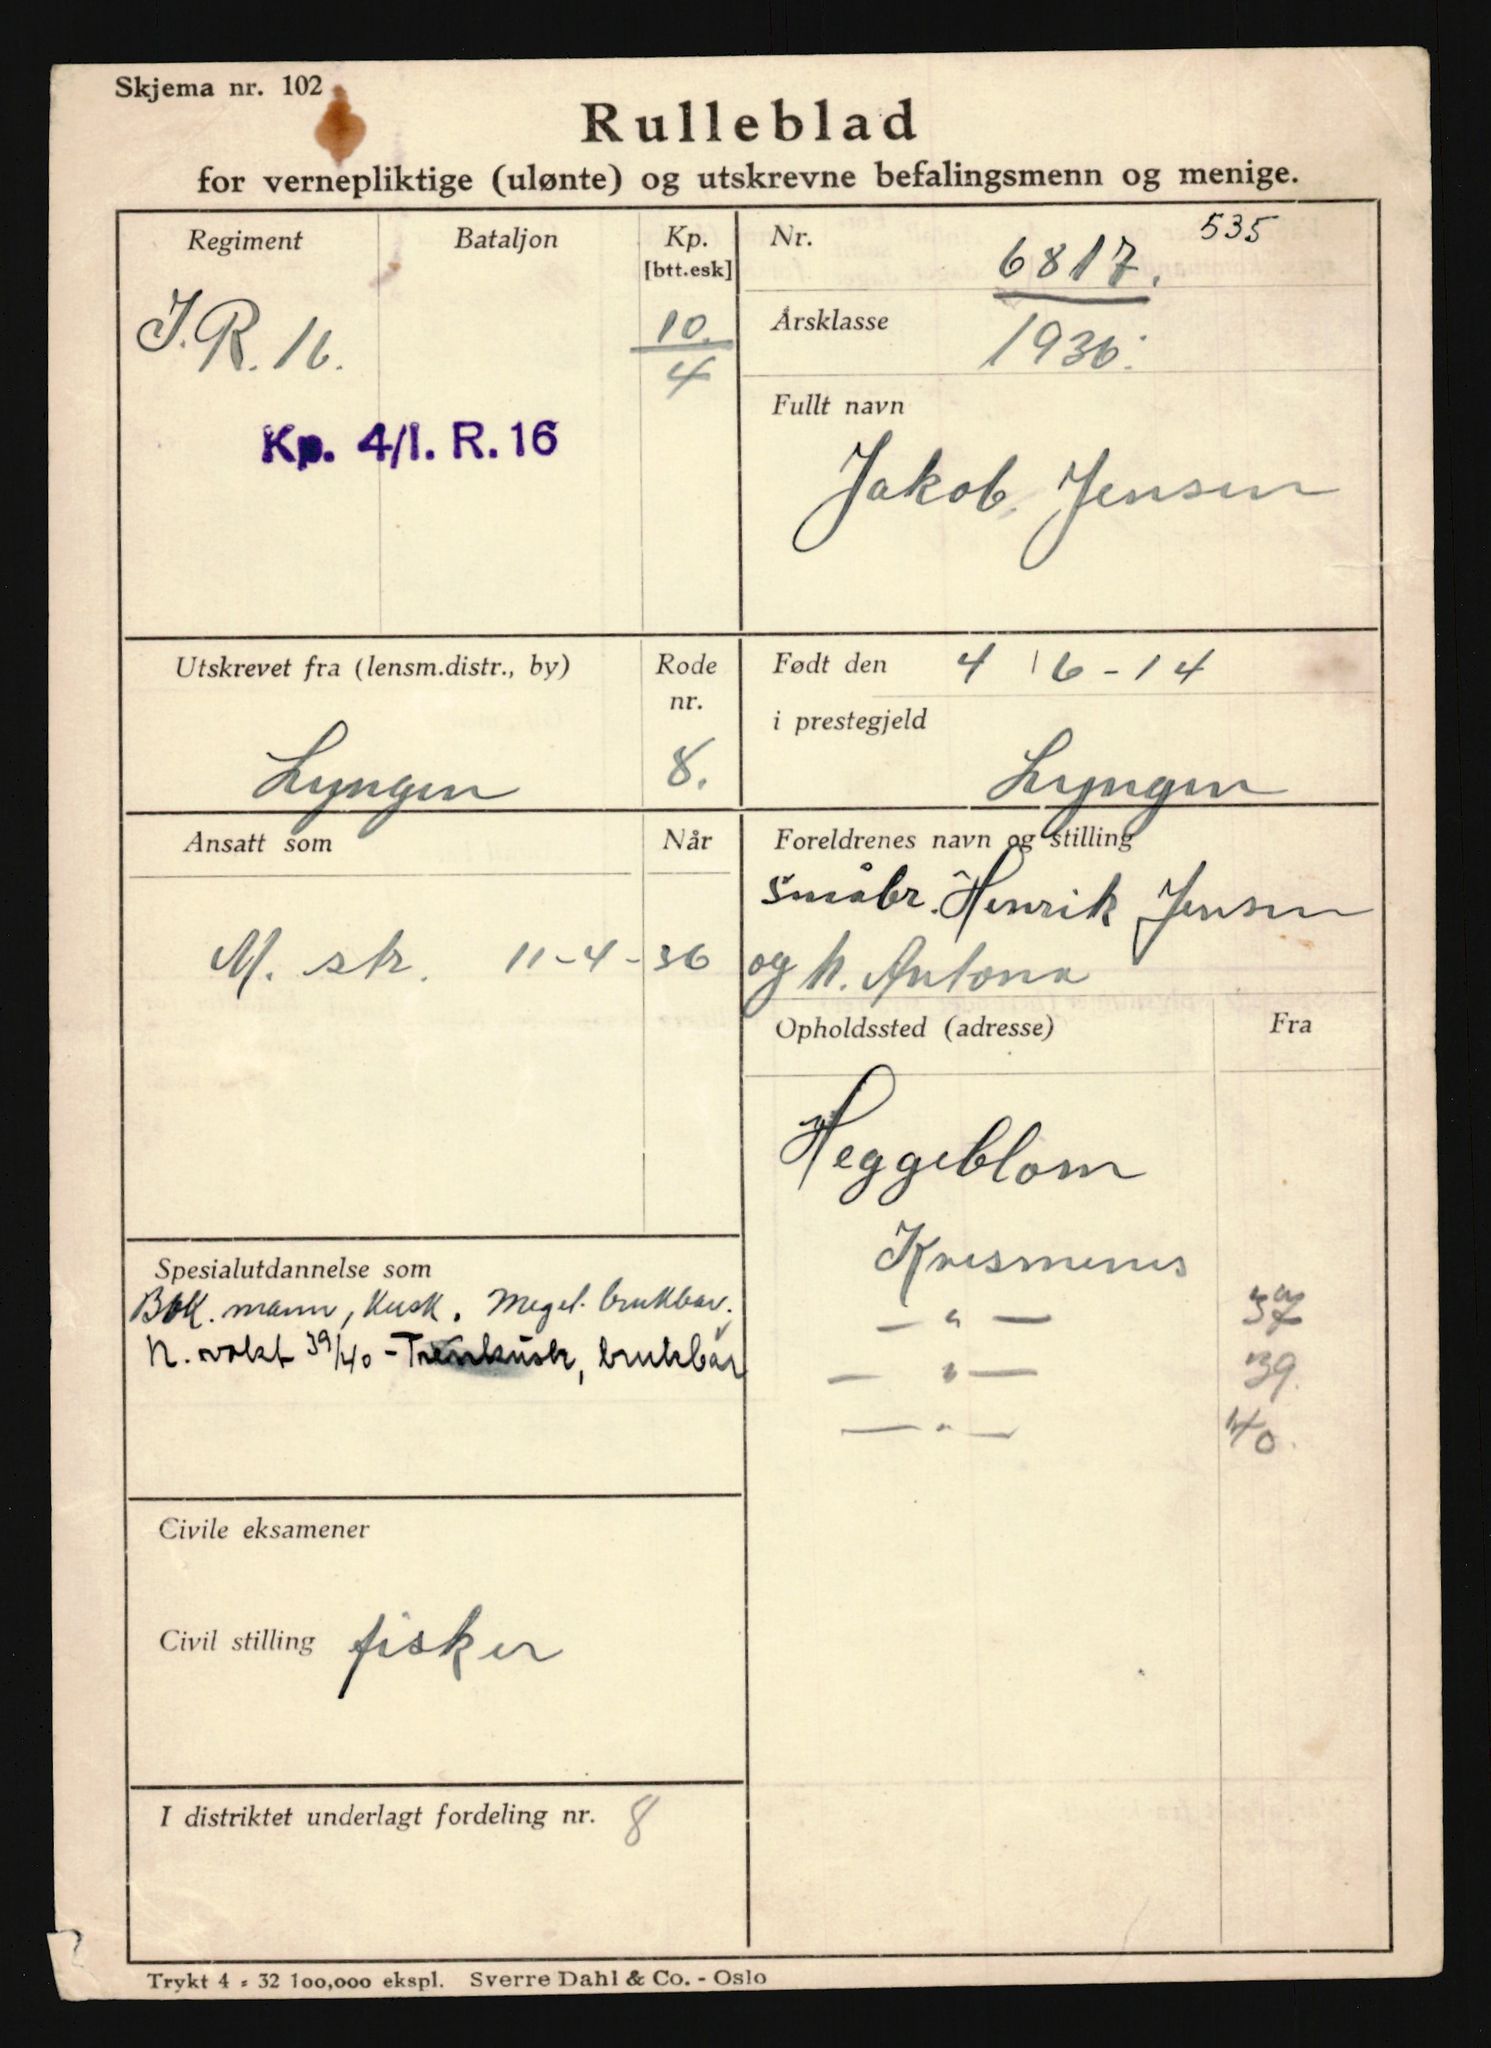 Skjema nr. 102
Rulleblad
for vernepliktige (ulønte) og utskrevne befalingsmenn og menige.
Regiment
Bataljon
Kp.
[btt.esk]
J.R. 16.
10.
4
Kp. 4/I. R. 16
Nr.
535
6817.
Årsklasse
1936.
Fullt navn
Jakob Jensen
Utskrevet fra (lensm.distr., by)
Rode
nr.
Lyngen
8.
Født den 4/6-14
i prestegjeld
Lyngen
Ansatt som
Når
M. str. 11-4-36
Foreldrenes navn og stilling
Småbr. Henrik Jensen
og h. Antona
Opholdssted (adresse)
Fra
Heggeblom
Kvesmenes
— " — 37
— " — 39.
— " — 40.
Spesialutdannelse som
mann, Kusk. Meget brukbar.
N. vakt 39/40 - Trenkusk, brukbar
Civile eksamener
Civil stilling fisker
I distriktet underlagt fordeling nr. 8
Trykt 4 - 32 100,000 ekspl. Sverre Dahl & Co. - Oslo